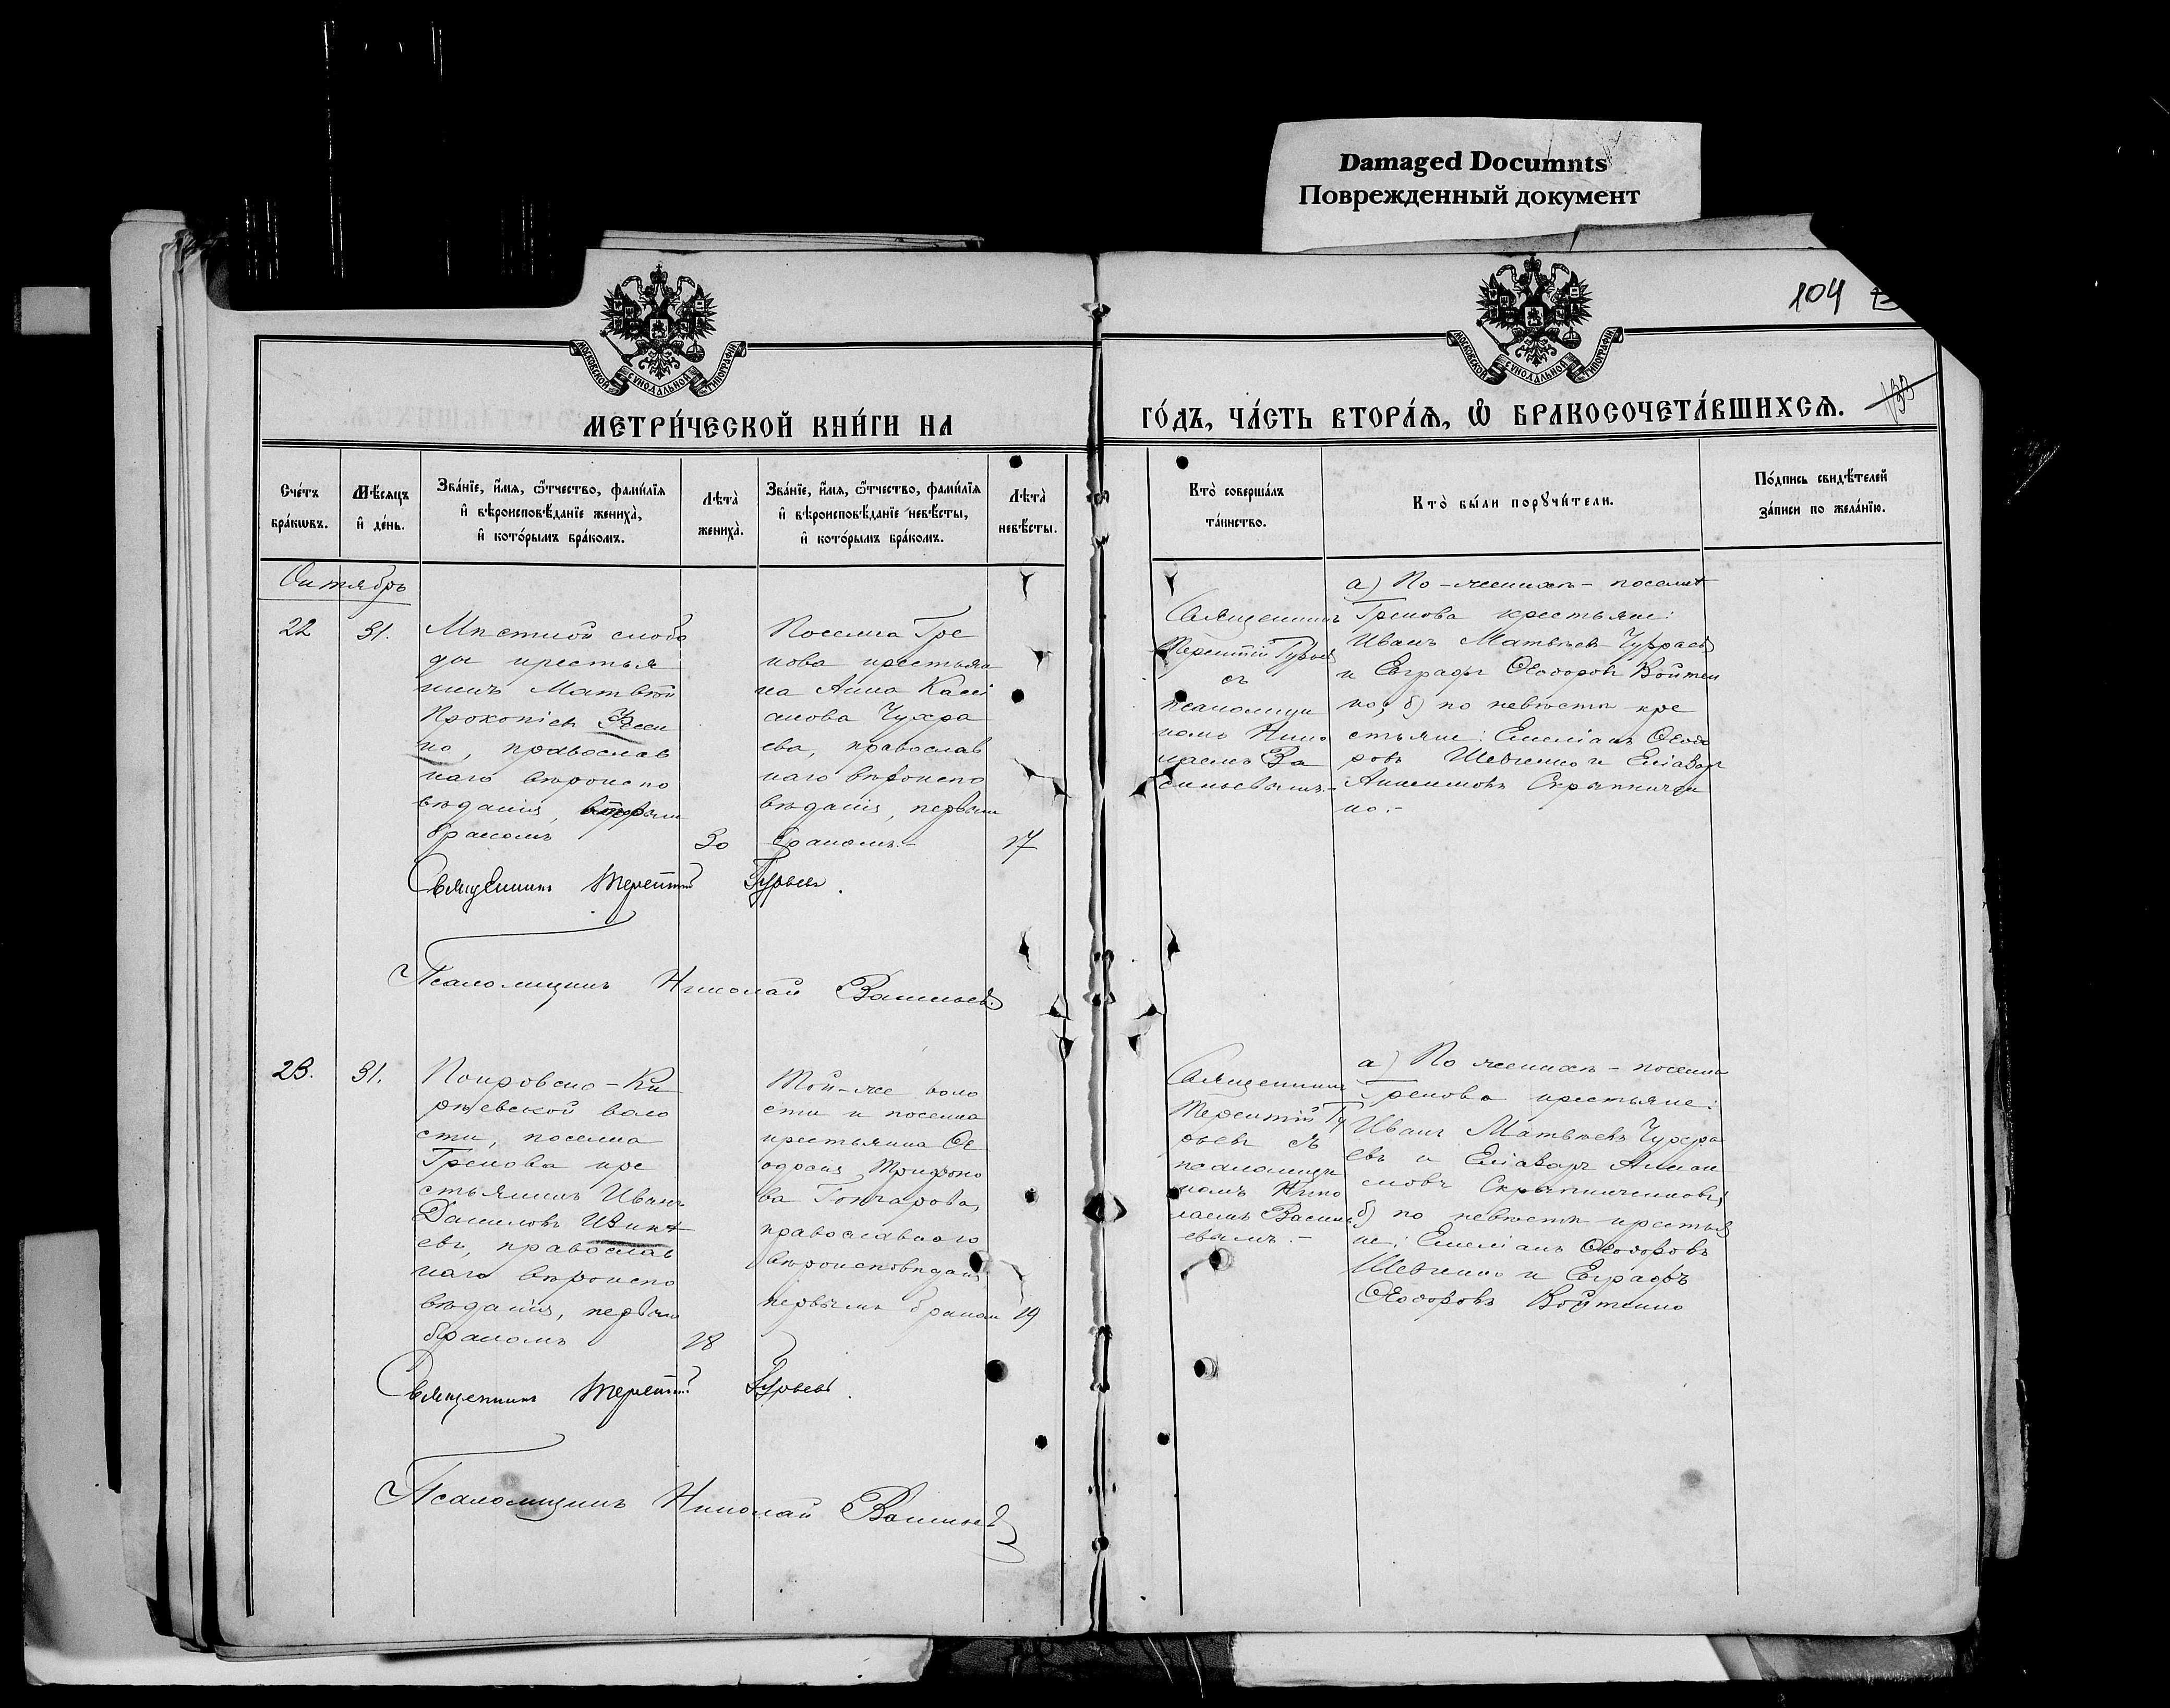 Damaged Documnts
Поврежденный документ
104
МОСКОВСКОЙ СУНОДАЛЬНОЙ ТИПОГРАФІИ
МОСКОВСКОЙ СУНОДАЛЬНОЙ ТИПОГРАФІИ
МЕТРИ́ЧЕСКОЙ КНИ́ГИ НА
ГО́ДЪ, ЧА́СТЬ ВТОРА́Я, Ѡ БРАКОСОЧЕТА́ВШИХСЯ.
133
Сче́тъ
бра́кѡвъ.
Мѣ́сяцъ
и҆ де́нь.
Зва́нїе, и҆́мя, ѻ҆́тчество, фамѝлїя
и҆ вѣроисповѣ́данїе жениха̀,
и҆ кото́рымъ бра́комъ.
Лѣта̀
жениха̀.
Зва́нїе, и҆́мя, ѻ҆́тчество, фамѝлїя
и҆ вѣроисповѣ́данїе невѣ́сты,
и҆ кото́рымъ бра́комъ.
Лѣта̀
невѣ́сты.
Кто̀ соверша́лъ
та́инство.
Кто̀ бы́ли порꙋчи́тели.
По́дпись свидѣ́телей
за́писи по жела́нїю.
Октябрь
22
31.
Мѣстной слобо
ды крестья
нинъ Матвѣй
Прокопіевъ
но, православ
наго вѣроиспо
вѣданія, вторым
бракомъ
30
Поселка Гре
кова крестьян
ка Анна Касі
анова Чухра
ева, православ
наго вѣроиспо
вѣданія, первым
бракомъ.-
17
Священникъ
Терентій Гурьев
съ
псаломщи
комъ Нико
лаемъ Ва
сильевымъ.-
а) По-женихѣ- поселка
Грекова крестьяне:
Иванъ Матвѣевъ Чухраевъ
и Евграфъ Ѳеодоровъ Войтен
ко; б) по невѣстѣ кре
стьяне: Емеліанъ Ѳеодо
ровъ Шевченко и Еліазар
Анисимовъ Скрыпничен
ко.-
Священникъ Терентій Гурьевъ.
Псаломщикъ Николай Васильевъ.
23.
31.
Покровско-Ки
рѣевской воло
сти, поселка
Грекова кре
стьянинъ Иванъ
Даниловъ Изикѣ
евъ, православ
наго вѣроиспо
вѣданія, первым
бракомъ
28
Той-же воло
сти и поселка
крестьянка Ѳе
одосія Трифоно
ва Гончарова,
православнаго
вѣроисповѣданія
первымъ браком
19
Священникъ
Терентій Гу
рьевъ съ
псаломщи
комъ Нико
лаемъ Василь
евымъ.-
а) По женихѣ- поселка
Грекова крестьяне:
Иванъ Матвѣевъ Чухра
евъ и Еліазаръ Аниси
мовъ Скрыпниченковъ;
б) по невѣстѣ крестья
не: Емеліанъ Ѳеодоровъ
Шевченко и Евграфъ
Ѳеодоровъ Войтенко
Священникъ Терентій Гурьевъ.
Псаломщикъ Николай Васильевъ